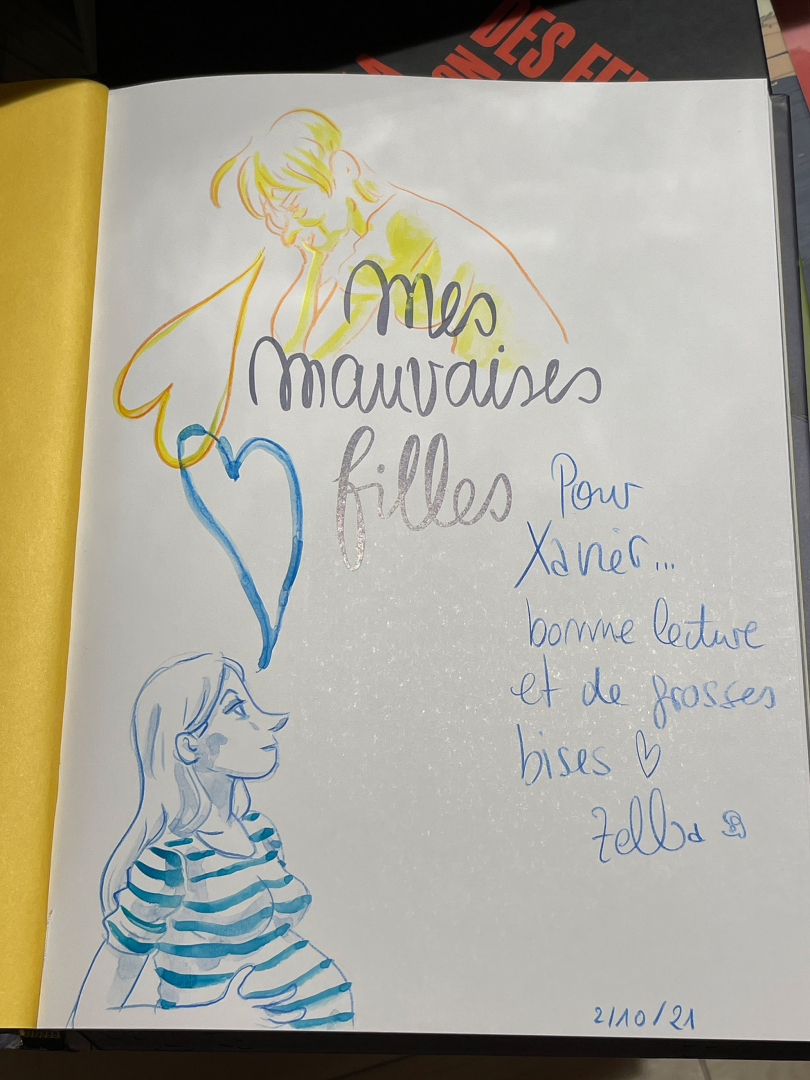 DES FE
ON
A
mes
mauvaises
filles
Pour
Xavier...
bonne lecture
et de grosses
bises ♡
Zelba
2/10/21